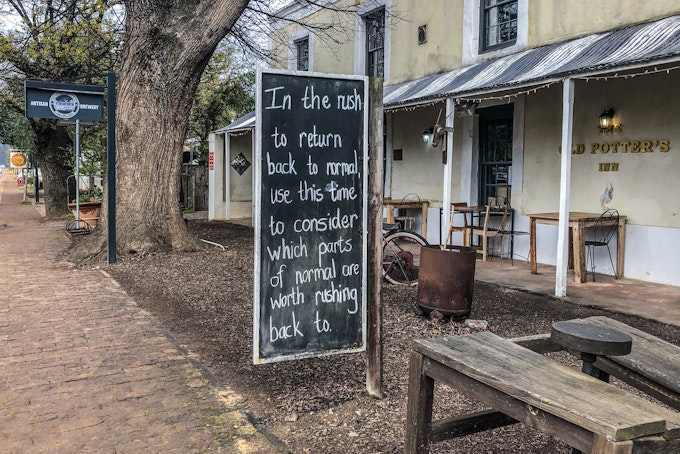 ARTISAN BREWERY
In the rush
to return
back to normal,
use this time
to consider
which parts
of normal are
worth rushing
back to.
OLD POTTER'S
INN